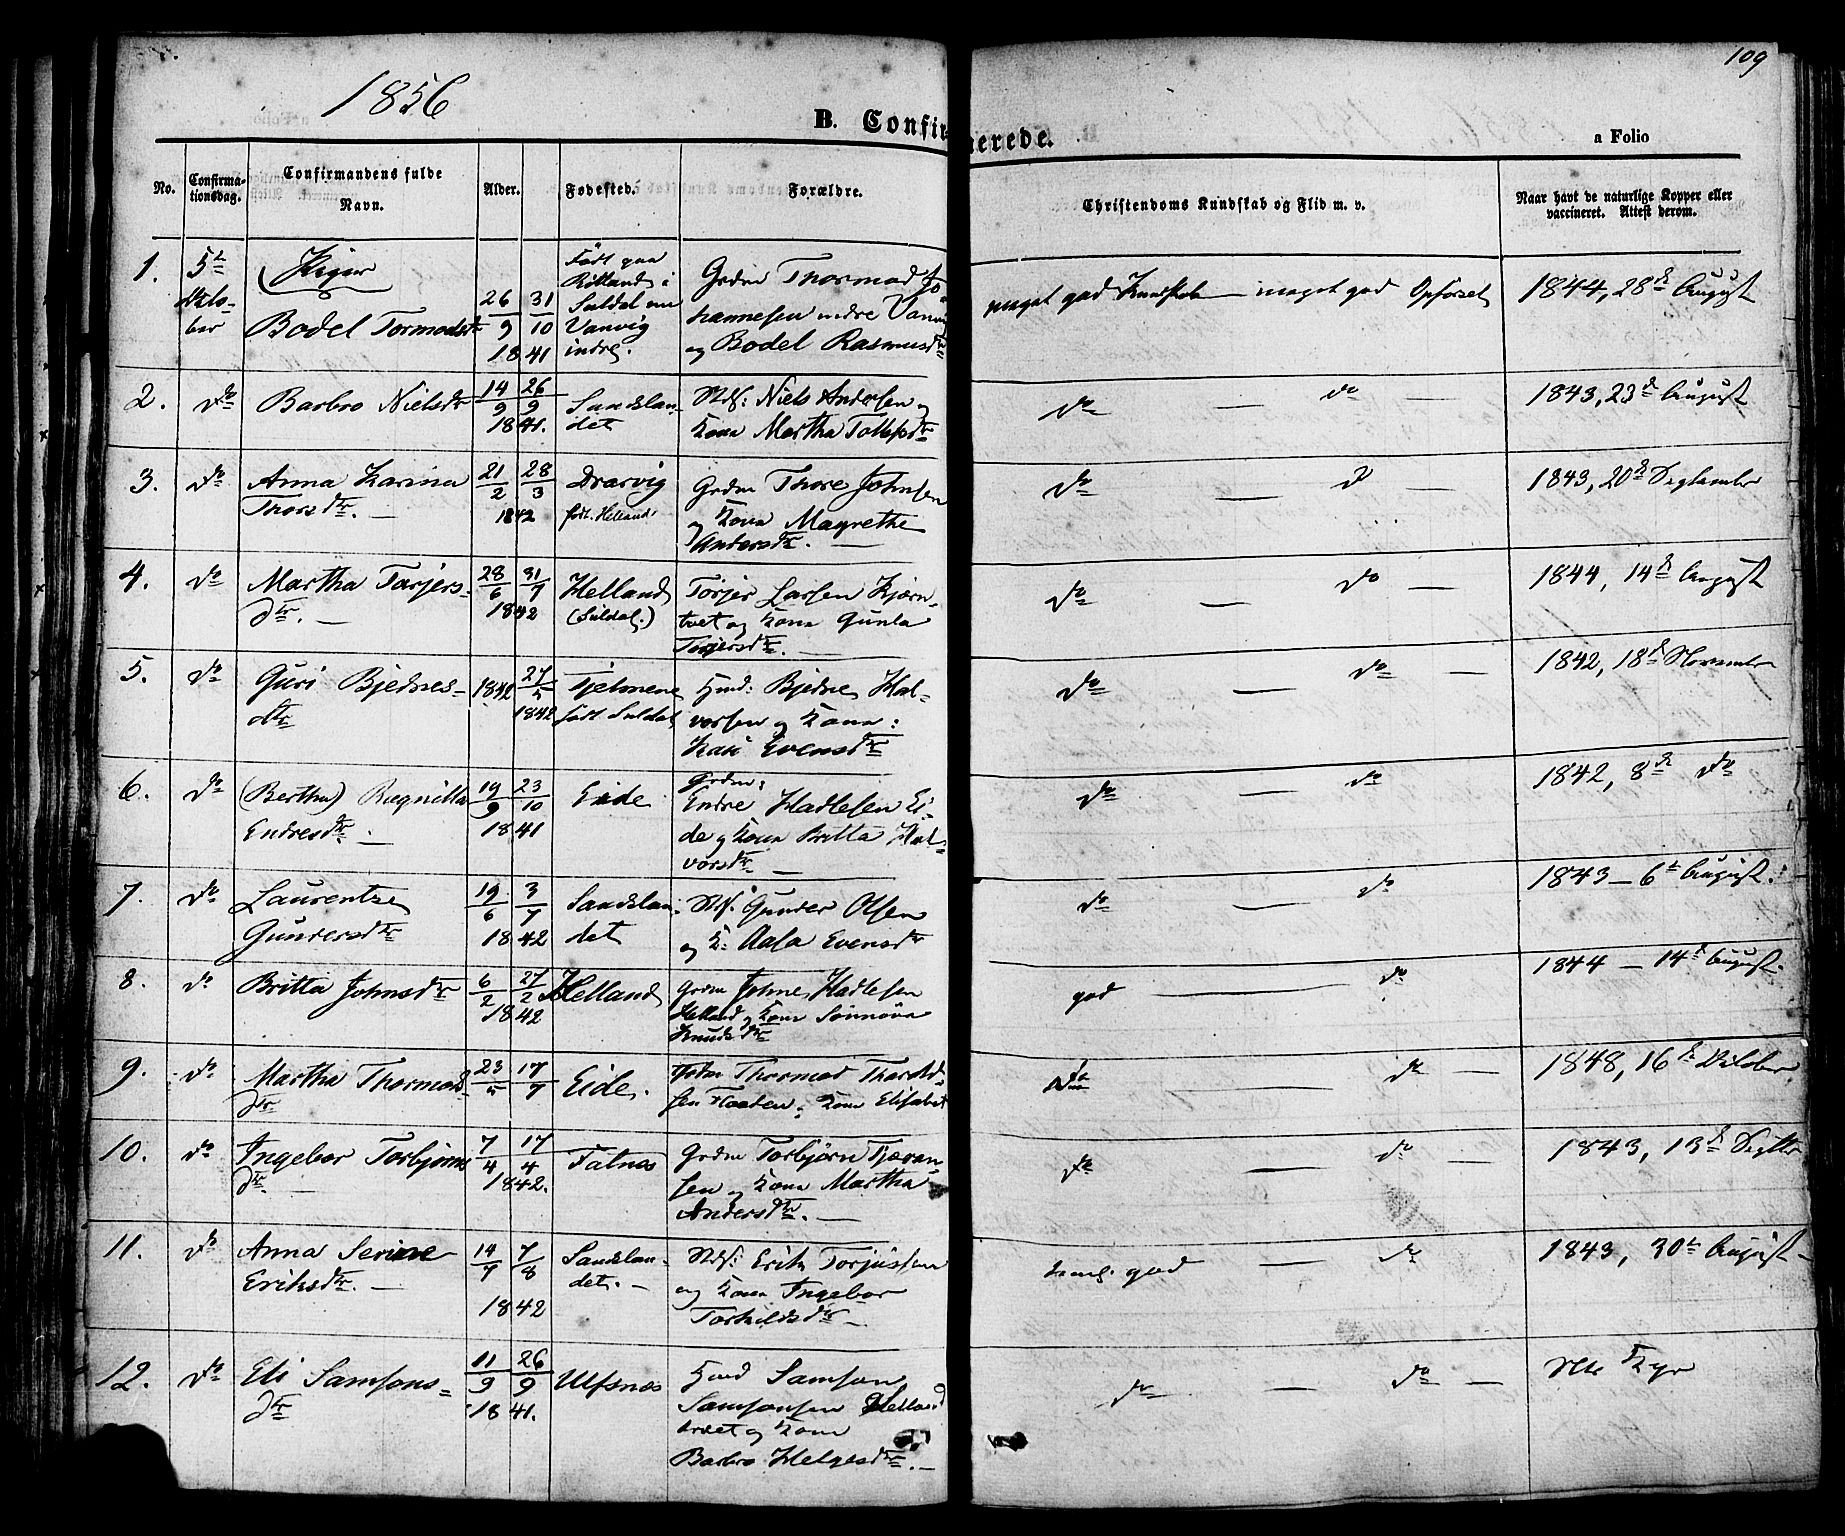 109
1856
B. Confirmerede.
a Folio
No.
Confirma-
tionsdag.
Confirmandens fulde
Navn.
Alder.
Fødested.
Forældre.
Christendoms Kundskab og Flid m. v.
Naar havt de naturlige Kopper eller
vaccineret. Attest derom.
1.
5te
Octo-
ber
Piger
Bodel Tormodsdtr
26 31
9 10
1841
Født paa
Suldal nu
Vanvig
indre.
Grdm Thormod Jo-
hannesen indre Vanvig
og Bodel Rasmusdtr
meget god Kundskab — meget god Opførsel
1844, 28de August
2.
do
Barbro Nielsdtr
14 26
9 9
1841.
Sandslan-
det
Niels Andersen og
Kone Martha Tollefsdtr
do — do —
1843, 23de August
3.
do
Anna Karina
Thorsdtr. —
21 28
2 3
1842
Drarvig
født Helland
Grdm Thore Johnsen
og Kone Magrethe
Andersdtr. —
do — do —
1843, 20de September
4.
do
Martha Tarjers-
dtr. —
28 31
6 7
1842
Helland
(Suldal.)
Torjer Larsen Kjørn-
tvet og Kone Gunla
Torjersdtr. —
do — do —
1844, 14de August
5.
do
Guri Bjednes-
dtr
1842
27
5
1842
Tjelmene
født Suldal
Huusmd: Bjedne Hal-
vorsen og Kone:
Kari Evensdtr
do — do —
1842, 18de November
6.
do
(Bertha) Ragnilla
Endresdtr. —
19 23
9 10
1841
Eide
Grdm:
Endre Hadlesen Ei-
de og Kone Britta Hal-
vorsdtr —
do — do —
1842, 8de do
7.
do
Laurentze
Gundersdtr
19 3
6 7
1842
Sandslan-
det
Gunder Olsen
og K. Aasa Evensdtr
do — do
1843 — 6te August.
8.
do
Britta Johnsdtr
6 27
2 2
1842
Helland
Grdm Johne Hadlesen
Helland og Kone Sønnøva
Knudsdtr
god — do —
1844 — 14de August.
9.
do
Martha Thormods-
dtr
23 17
5 7
Eide.
Thormod Tharald-
sen Kone Elisabet
do — do —
1848, 16de October
10.
do
Ingebor Torbjørns-
dtr. —
7 17
4 4
1842.
Fatnes
Grdm Torbjørn Tjæran-
sen og Kone Martha
Andersdtr. —
do — do —
1843, 13de Septbr
11.
do
Anna Serine
Eriksdtr. —
14 7
7 8
1842
Sandslan-
det. —
Erik Torjussen
og Kone Ingebor
Torkildsdtr —
teml. god — do —
1843, 30te August
12.
do
Eli Samsons-
dtr
11 26
9 9
1841.
Ulfsnes
Huusmd Samson
Samsonsen Helland
og Kone
Barbro Helgesdtr. —
do — do —